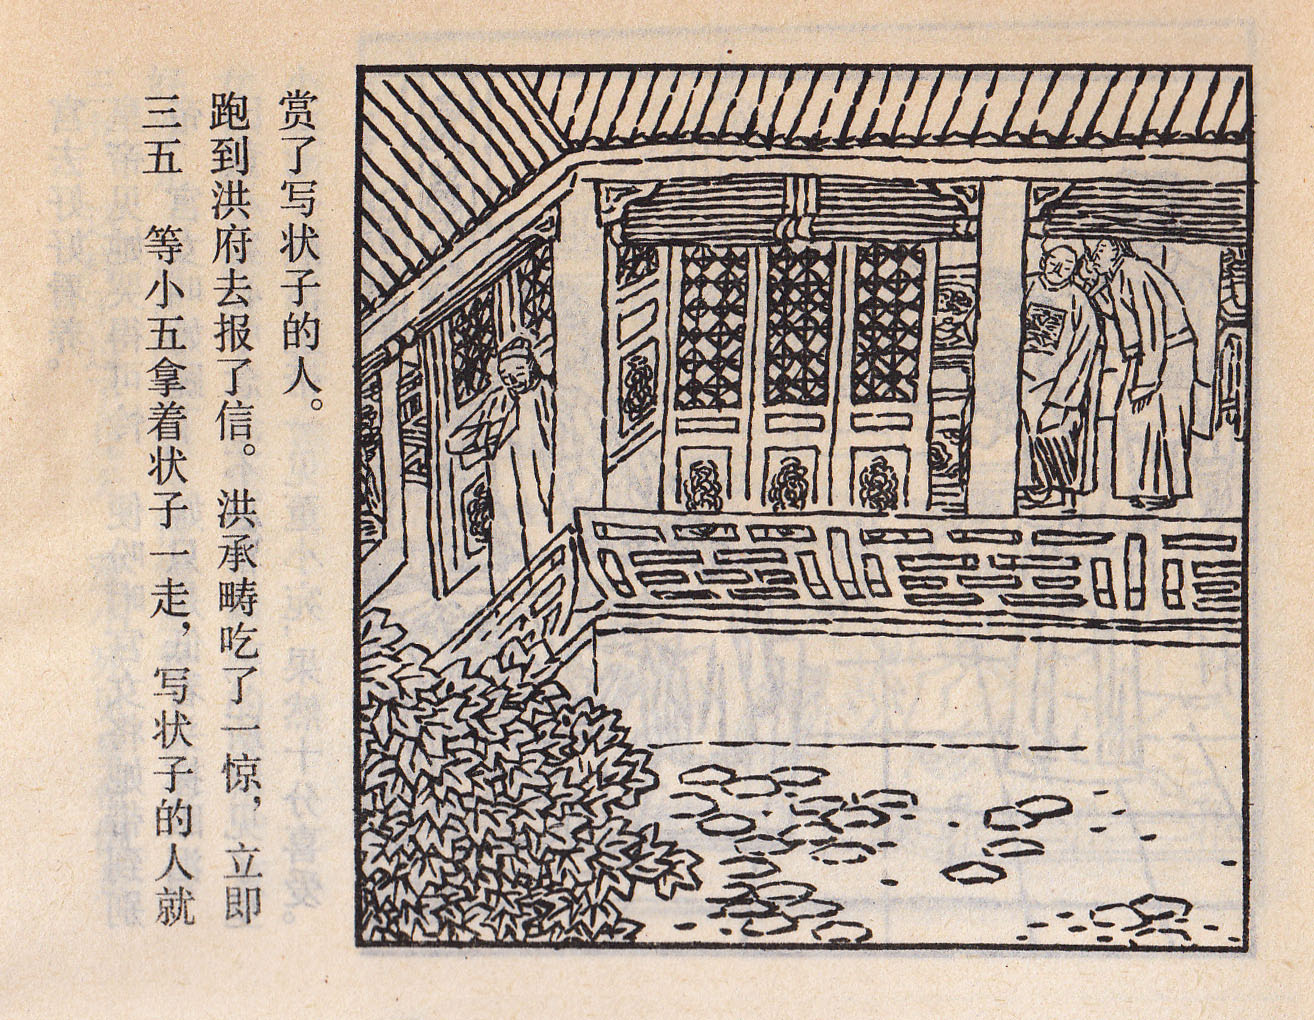 三五 等小五拿着状子一走，写状子的人就
跑到洪府去报了信。洪承畴吃了一惊，立即
赏了写状子的人。